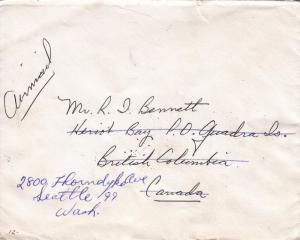 Airmail
Mr. R. I. Bennett
Heriot Bay P.O. Quadra Is.
British Columbia
Canada
2800 Thorndyke Ave
Seattle 99
Wash.
12-